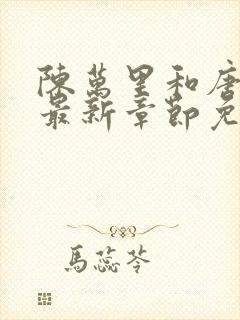 陳萬里和唐
最新章節免
馬蕊苓